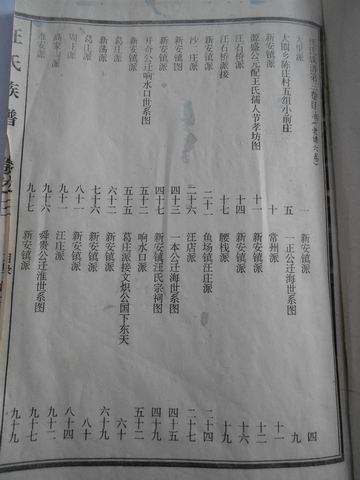 大圈乡陈庄村五组小前庄
新安镇派
源盛公元配王氏儒人节孝坊图
汪石桥派
汪石桥派接
沙二庄派
新安镇派
新安镇图
开奇公迁响水口世系图
新安镇派
葛庄派
新荡派
葛江派
周庄派
淮安派
一
五
十
十四
十七
二十一
四十三
四十七
五十二
五十五
六十二
七十六
八十一
九十一
九十六
九十七
新安镇派
一正公迁海世系图
常州派
新安镇派
腰栈派
鱼场镇汪庄派
汪店派
一本公迁海世系图
新安镇汪氏宗祠图
响水口派
葛庄派接文炽公国下东天
新安镇派
新安镇派
新安镇派
汪庄派
舜贵公迁淮世系图
新安镇派
四
九
十一
十六
十九
二十四
二十七
四十五
四十九
五十二
六十
六十九
八十
八十四
九十二
九十七
九十九
汪氏族谱
卷之三
目录